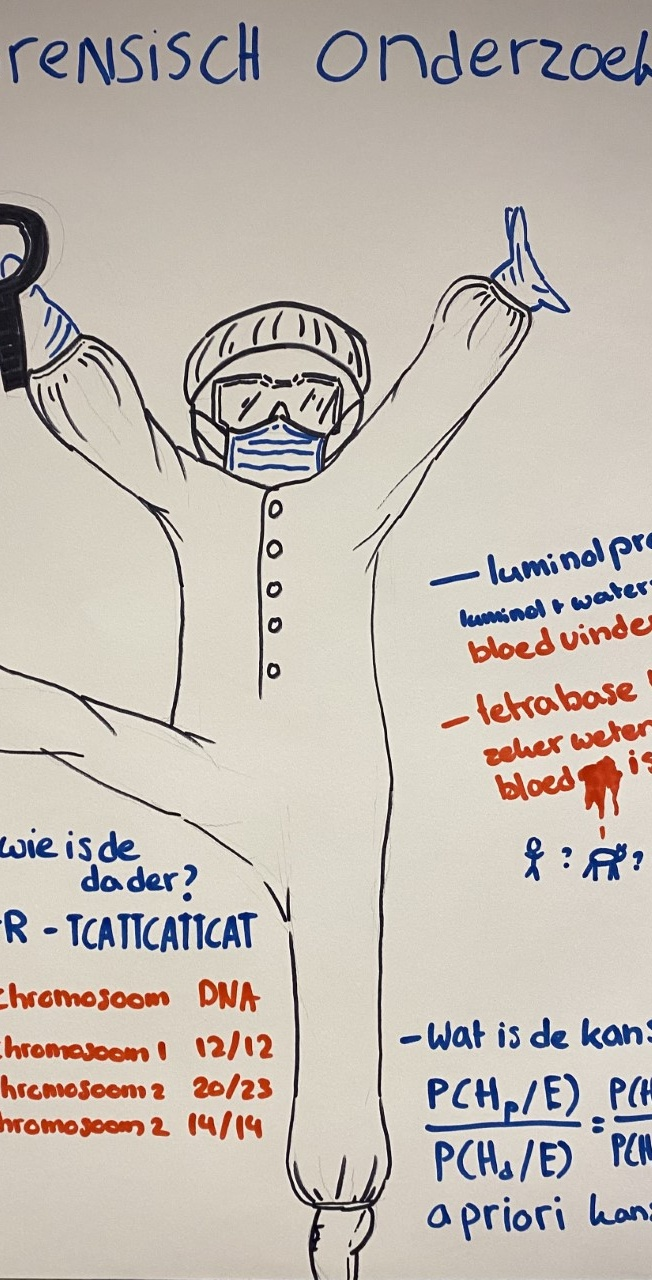 rensisch onderzoek
— luminol pro
luminol + water
bloed vinden
— tetrabase
zeker weten
bloed is
? ?
wie is de
dader?
R - TCATTCATTCAT
chromosoom DNA
chromosoom 1 12/12
chromosoom 2 20/23
chromosoom 2 14/14
- Wat is de kans
P(Hp/E) = P(H
P(Hd/E) P(H
a priori kans